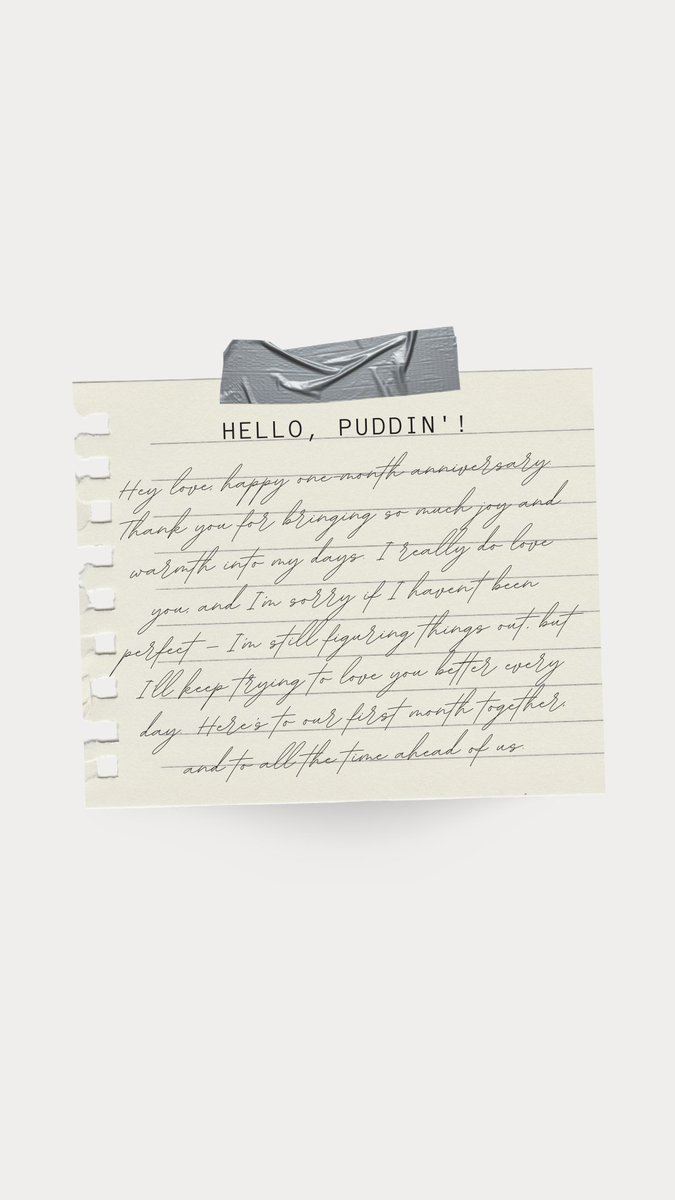 HELLO, PUDDIN'!
Hey love, happy one-month anniversary.
Thank you for bringing so much joy and
warmth into my days. I really do love
you, and I'm sorry if I haven't been
perfect — I'm still figuring things out, but
I'll keep trying to love you better every
day. Here's to our first month together,
and to all the time ahead of us.